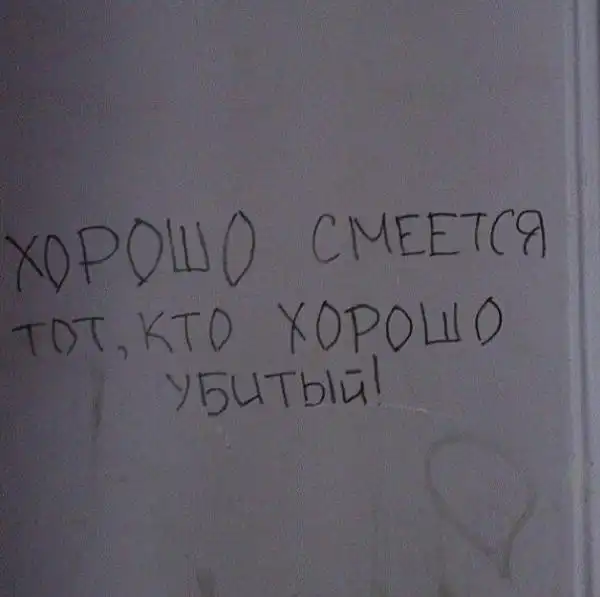 ХОРОШО СМЕЕТСЯ
ТОТ, КТО ХОРОШО
УБИТЫЙ!